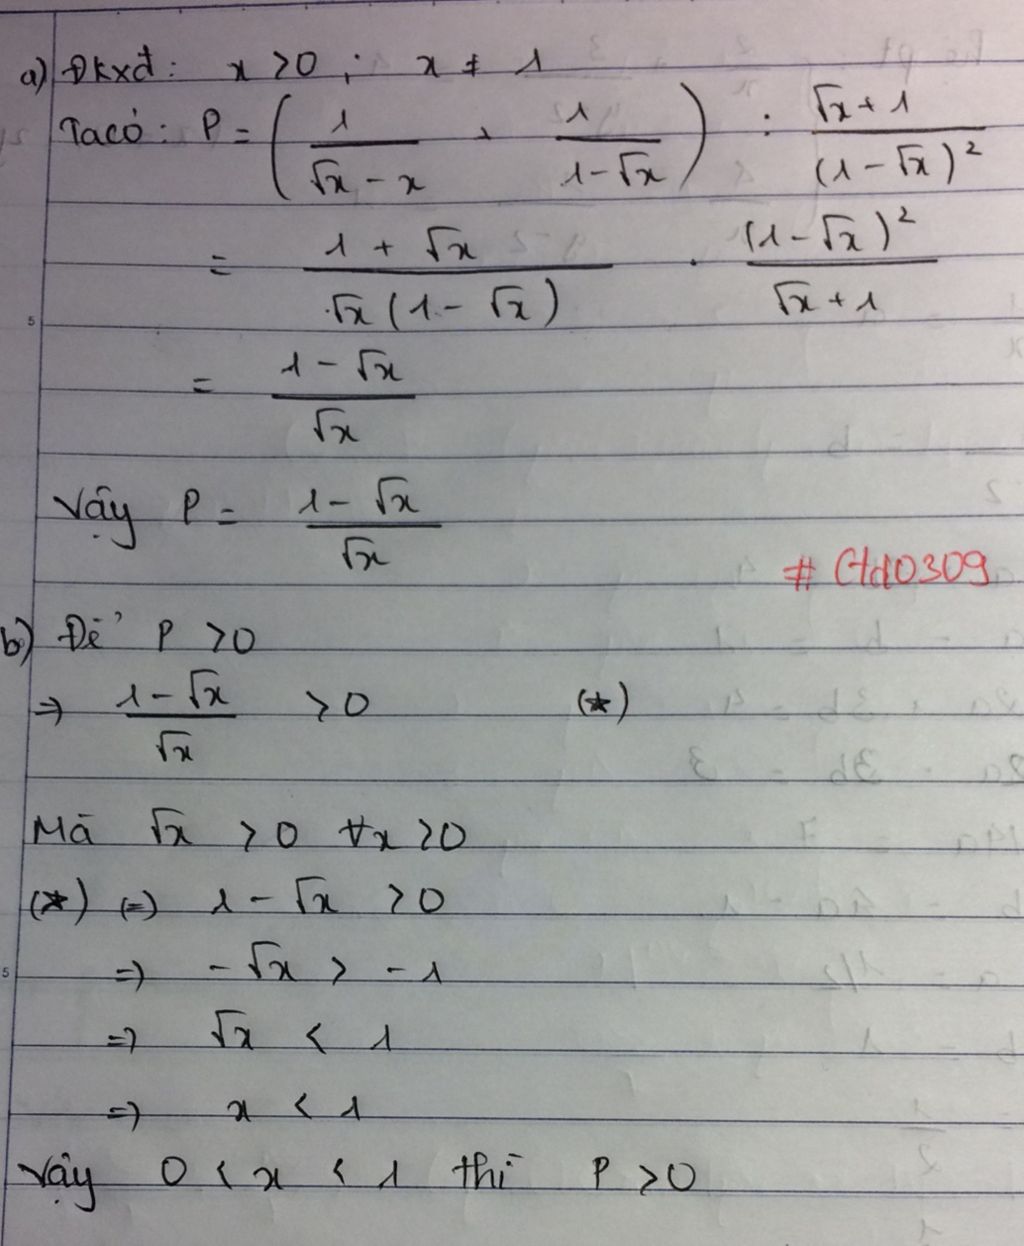 a) Đkxđ: x > 0 ; x ≠ 1
Ta có: P = ( 1/(√x - x) + 1/(1 - √x) ) : (√x + 1)/(1 - √x)²
= (1 + √x)/(√x(1 - √x)) . (1 - √x)²/(√x + 1)
= (1 - √x)/√x
Vậy P = (1 - √x)/√x
b) Để P > 0
=> (1 - √x)/√x > 0 (*)
Mà √x > 0 ∀x > 0
(*) (=) 1 - √x > 0
=) -√x > -1
=) √x < 1
=) x < 1
Vậy 0 < x < 1 thì P > 0